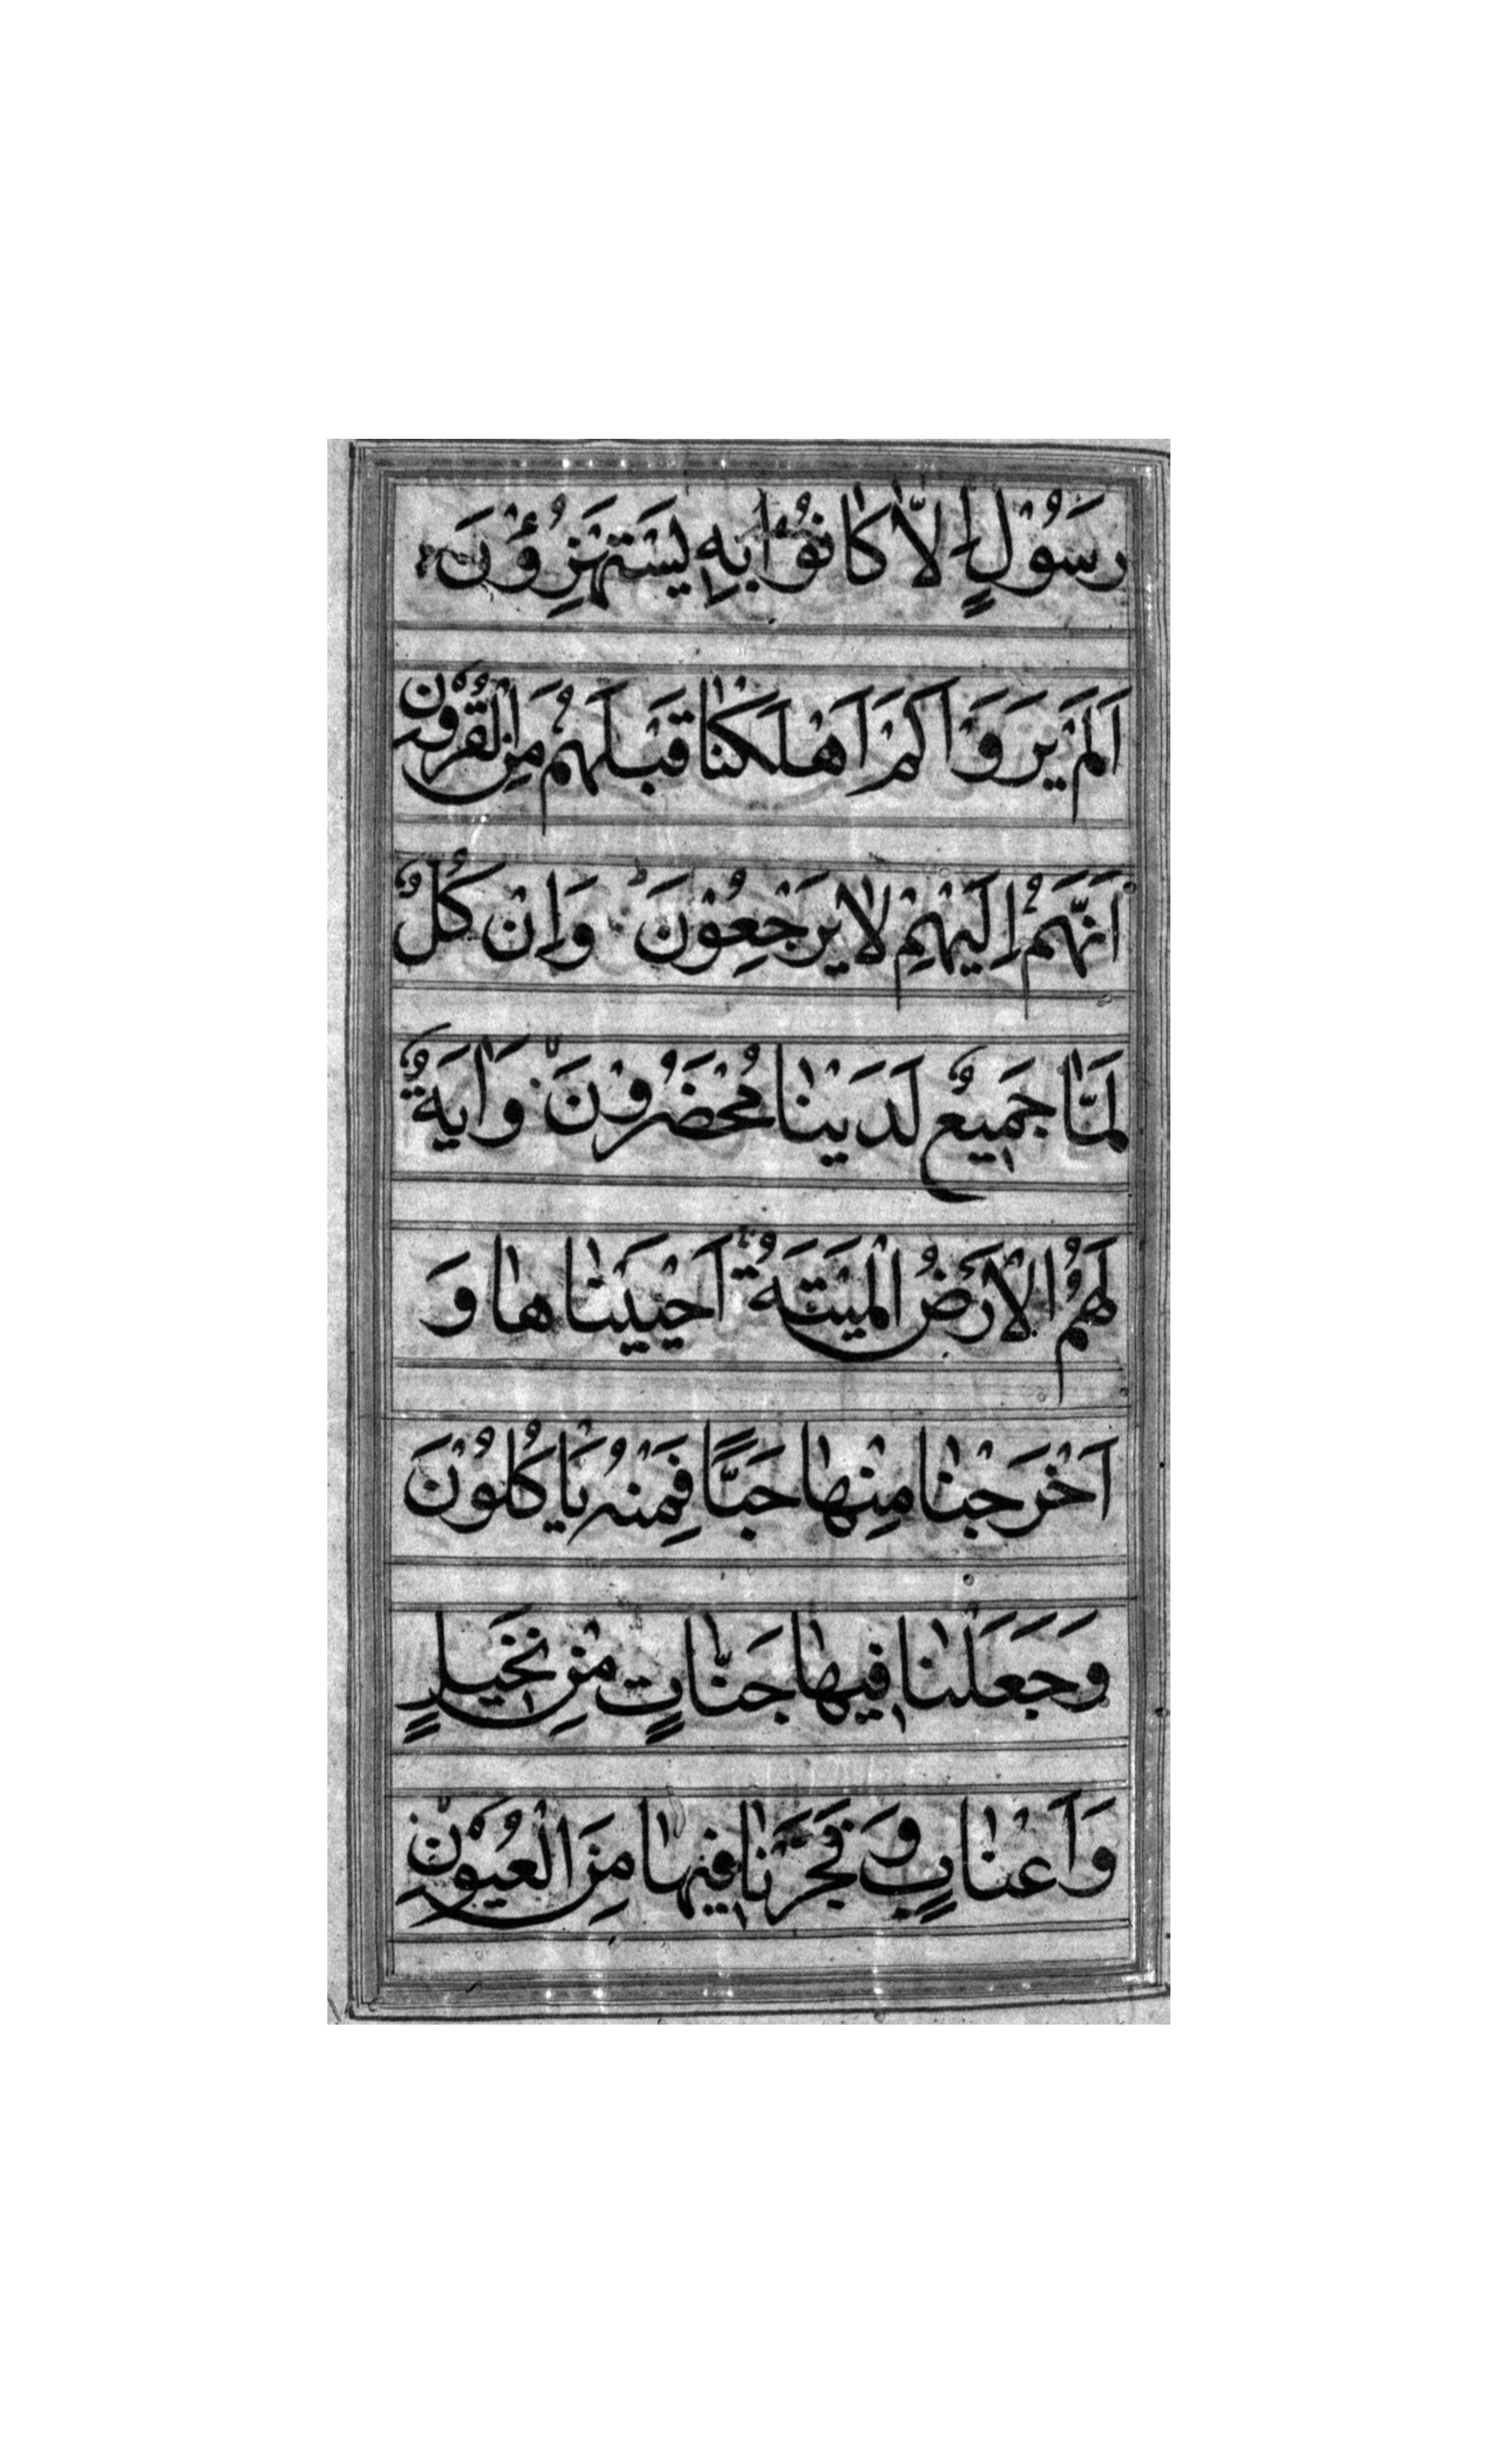 رَسُوْلٍ اِلَّا كَانُوْا بِهٖ يَسْتَهْزِؤُنَ
اَلَمْ يَرَوْا كَمْ اَهْلَكْنَا قَبْلَهُمْ مِنَ الْقُرُوْنِ
اَنَّهُمْ اِلَيْهِمْ لَا يَرْجَعِوُنَ وَاِنْ كُلٌّ
لَمَّا جَمِيعٌ لَدَيْنَا مُحْضَرُوْنَ وَاٰيَةٌ
لَهُمُ الْاَرْضُ الْمَيْتَةُ اَحْيَيْنَاهَا وَ
اَخْرَجْنَا مِنْهَا حَبًّا فَمِنْهُ يَاْكُلُوْنَ
وَجَعَلْنَا فِيهَا جَنَّاتٍ مِنْ نَخِيلٍ
وَاَعْنَابٍ وَفَجَّرْنَا فِيْهَا مِنَ الْعُيُوْنِ